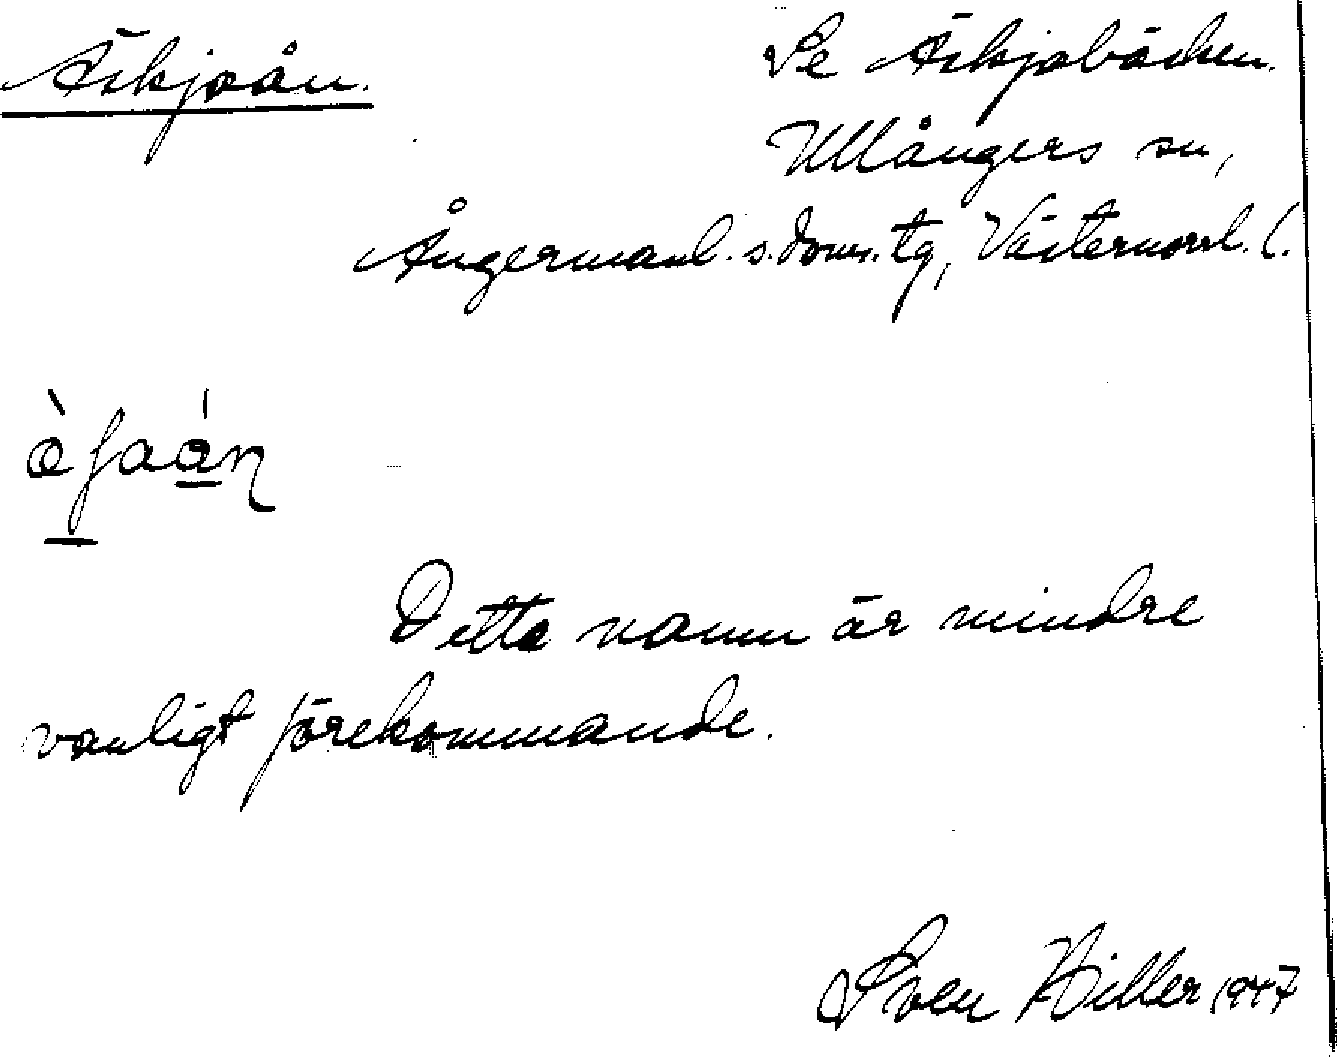 Äskjaån.
Se Äskjabäcken.
Ullångers sn,
Ångermanl. s. doms. tg, Västernorrl. l.
Detta namn är mindre
vanligt förekommande.
Sven Hiller 1947